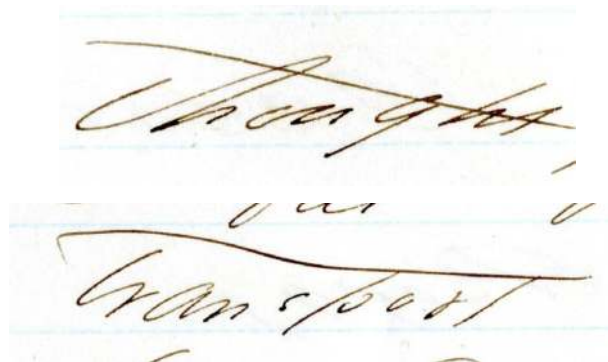 Thought
Transport